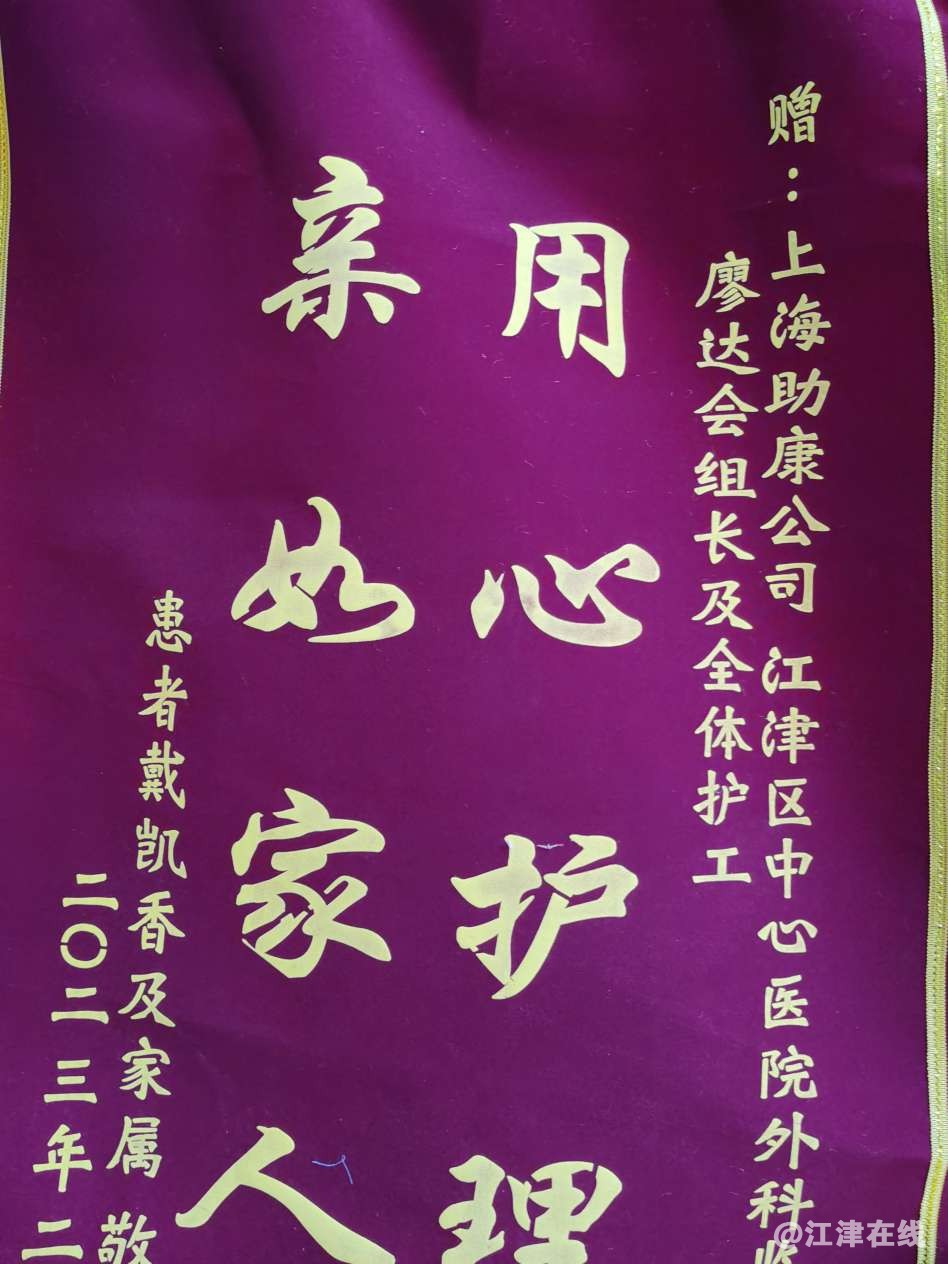 赠：上海助康公司 江津区中心医院外科
廖达会组长及全体护工
用心护理
亲如家人
患者戴凯香及家属 敬
二〇二三年二
@江津在线